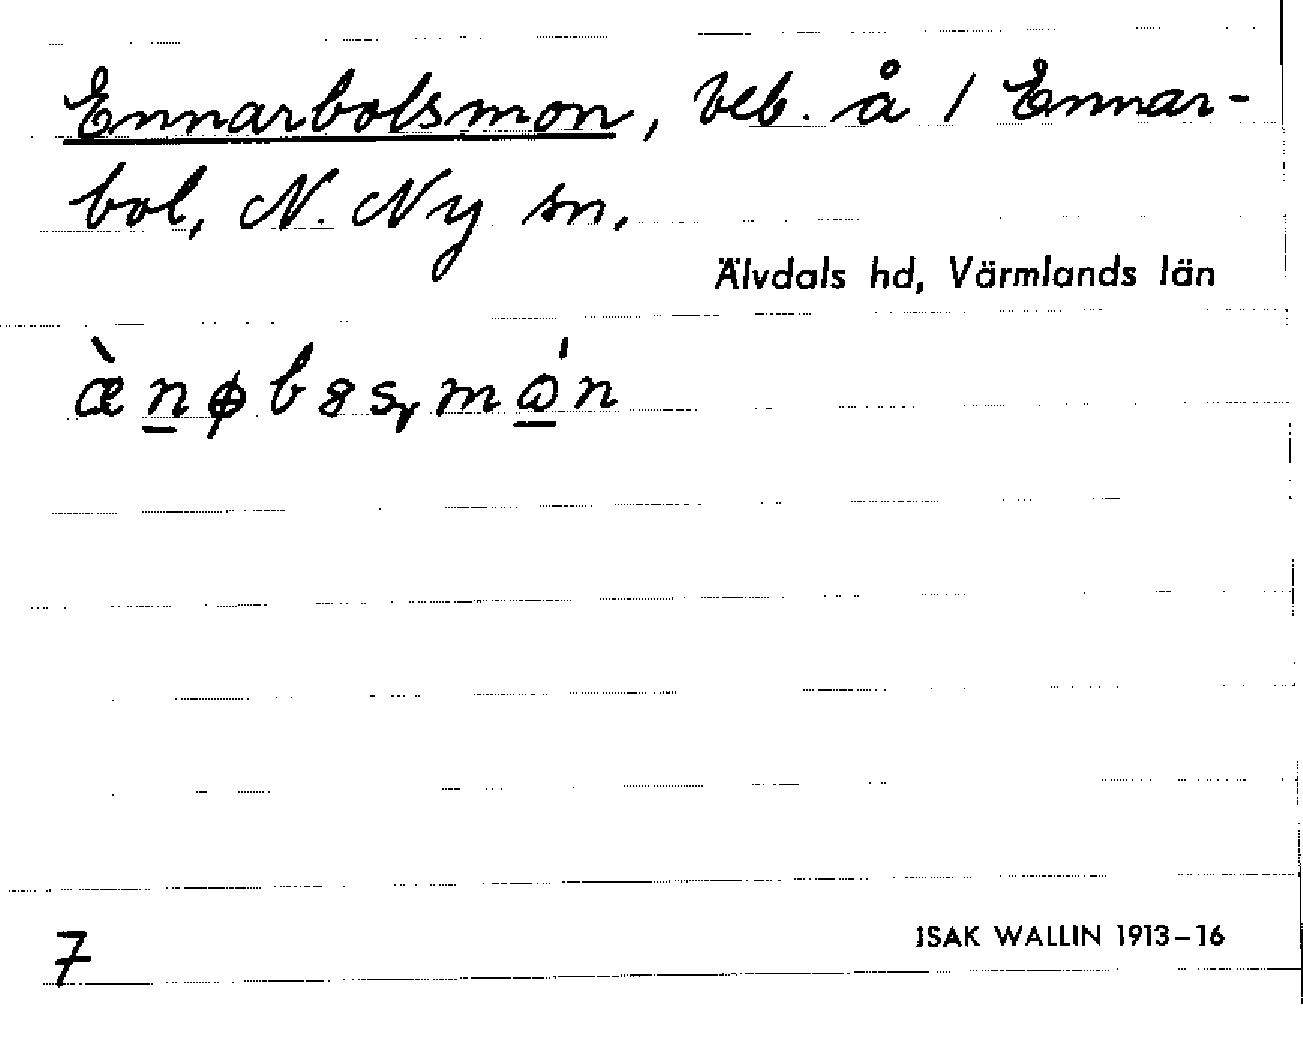 Ennarbolsmon, beb. å 1 Ennar-
bol, N. Ny sn.
Älvdals hd, Värmlands län
7
ISAK WALLIN 1913–16